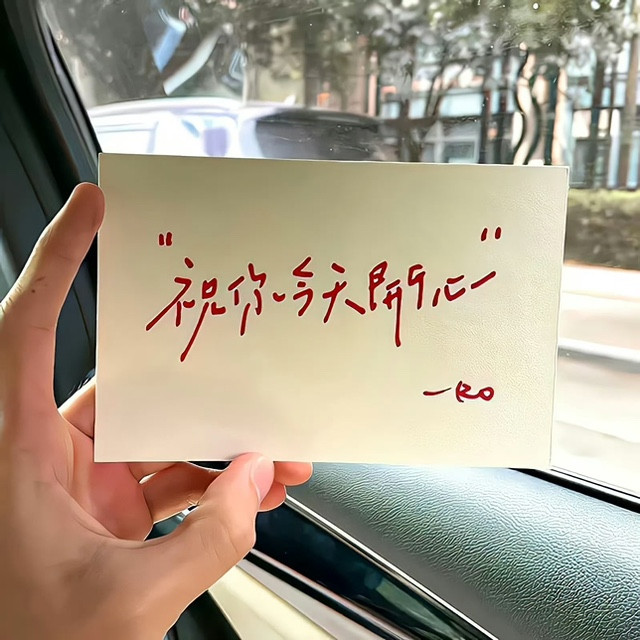 "祝你今天開心"
-KO